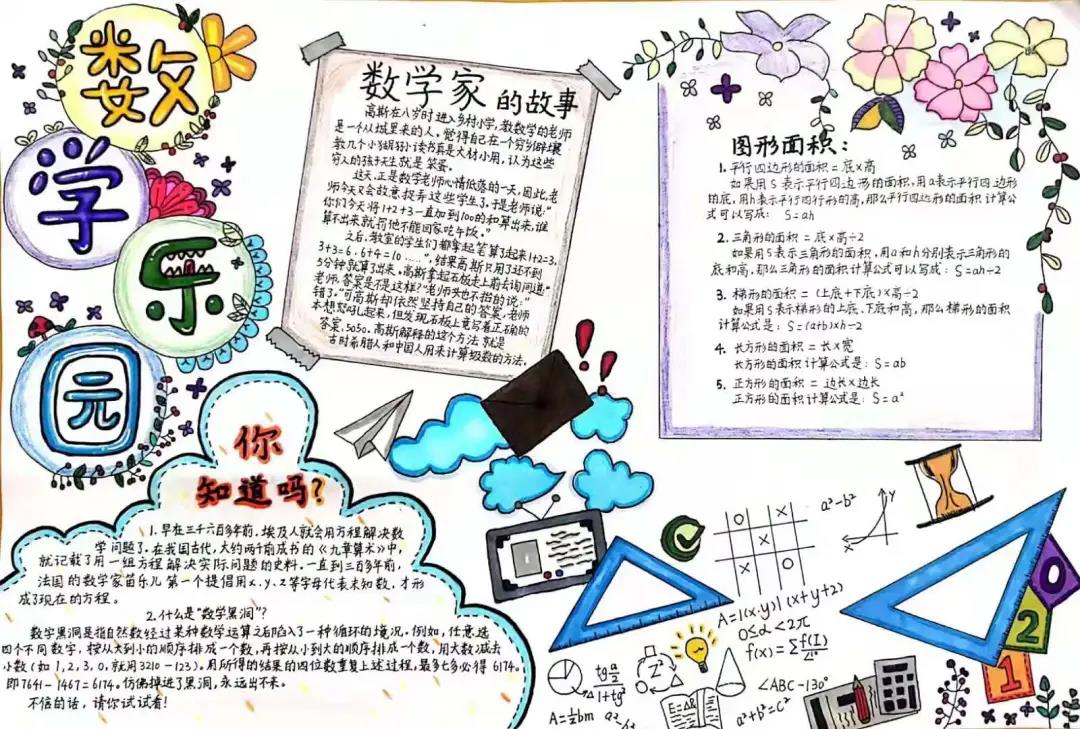 数
学
乐
园
数学家的故事
高斯在八岁时进入乡村小学,教数学的老师
是一个从城里来的人,觉得自己在一个穷乡僻壤
教几个小猢狲读书真是大材小用,认为这些
穷人的孩子天生就是笨蛋。
这天,正是数学老师心情低落的一天,因此,老
师今天又会故意捉弄这些学生了,于是老师说:“
你们今天将1+2+3一直加到100的和算出来,谁
算不出来就罚他不能回家吃午饭。”
之后,教室的学生们都拿起笔算了起来1+2=3,
3+3=6,6+4=10……”,结果高斯只用了还不到
5分钟就算了出来。高斯拿起石板走上前去询问道:“
老师,答案是不是这样?”老师头也不抬的说:“
错了。”可高斯却依然坚持自己的答案,老师
本想怒吼起来,但发现石板上竟写着正确的
答案,5050。高斯解释的这个方法就是
古时希腊人和中国人用来计算级数的方法。
图形面积:
1.平行四边形的面积=底×高
如果用S表示平行四边形的面积,用a表示平行四边形
的底,用h表示平行四行形的高,那么平行四边形的面积计算公
式可以写成: S=ah
2.三角形的面积=底×高÷2
如果用S表示三角形的面积,用a和h分别表示三角形的
底和高,那么三角形的面积计算公式可以写成:S=ah÷2
3.梯形的面积=(上底+下底)×高÷2
如果用S表示梯形的上底、下底和高,那么梯形的面积
计算公式是:S=(a+b)×h÷2
4.长方形的面积=长×宽
长方形的面积计算公式是:S=ab
5.正方形的面积=边长×边长
正方形的面积计算公式是:S=a²
你
知道吗?
1.早在三千六百多年前,埃及人就会用方程解决数
学问题了.在我国古代,大约两千前成书的《九章算术》中,
就记载了用一组方程解决实际问题的史料.一直到三百多年前,
法国的数学家笛乐儿第一个提倡用x.y.z等字母代表未知数,才形
成了现在的方程。
2.什么是“数学黑洞”?
数字黑洞是指自然数经过某种数学运算之后陷入了一种循环的境况。例如,任意选
四个不同数字,按从大到小的顺序排成一个数,再按从小到大的顺序排成一个数,用大数减去
小数(如1,2,3,0,就用3210-123)。用所得的结果的四位数重复上述过程,最多七步必得6174。
即7641-1467=6174。仿佛掉进了黑洞,永远出不来。
不信的话,请你试试看!
a²-b²
y
x
A=1(x·y)(x+y+2)
0≤α<2π
∠ABC-130°
a²+b²=c²
A=½bm
E=
0
2
1